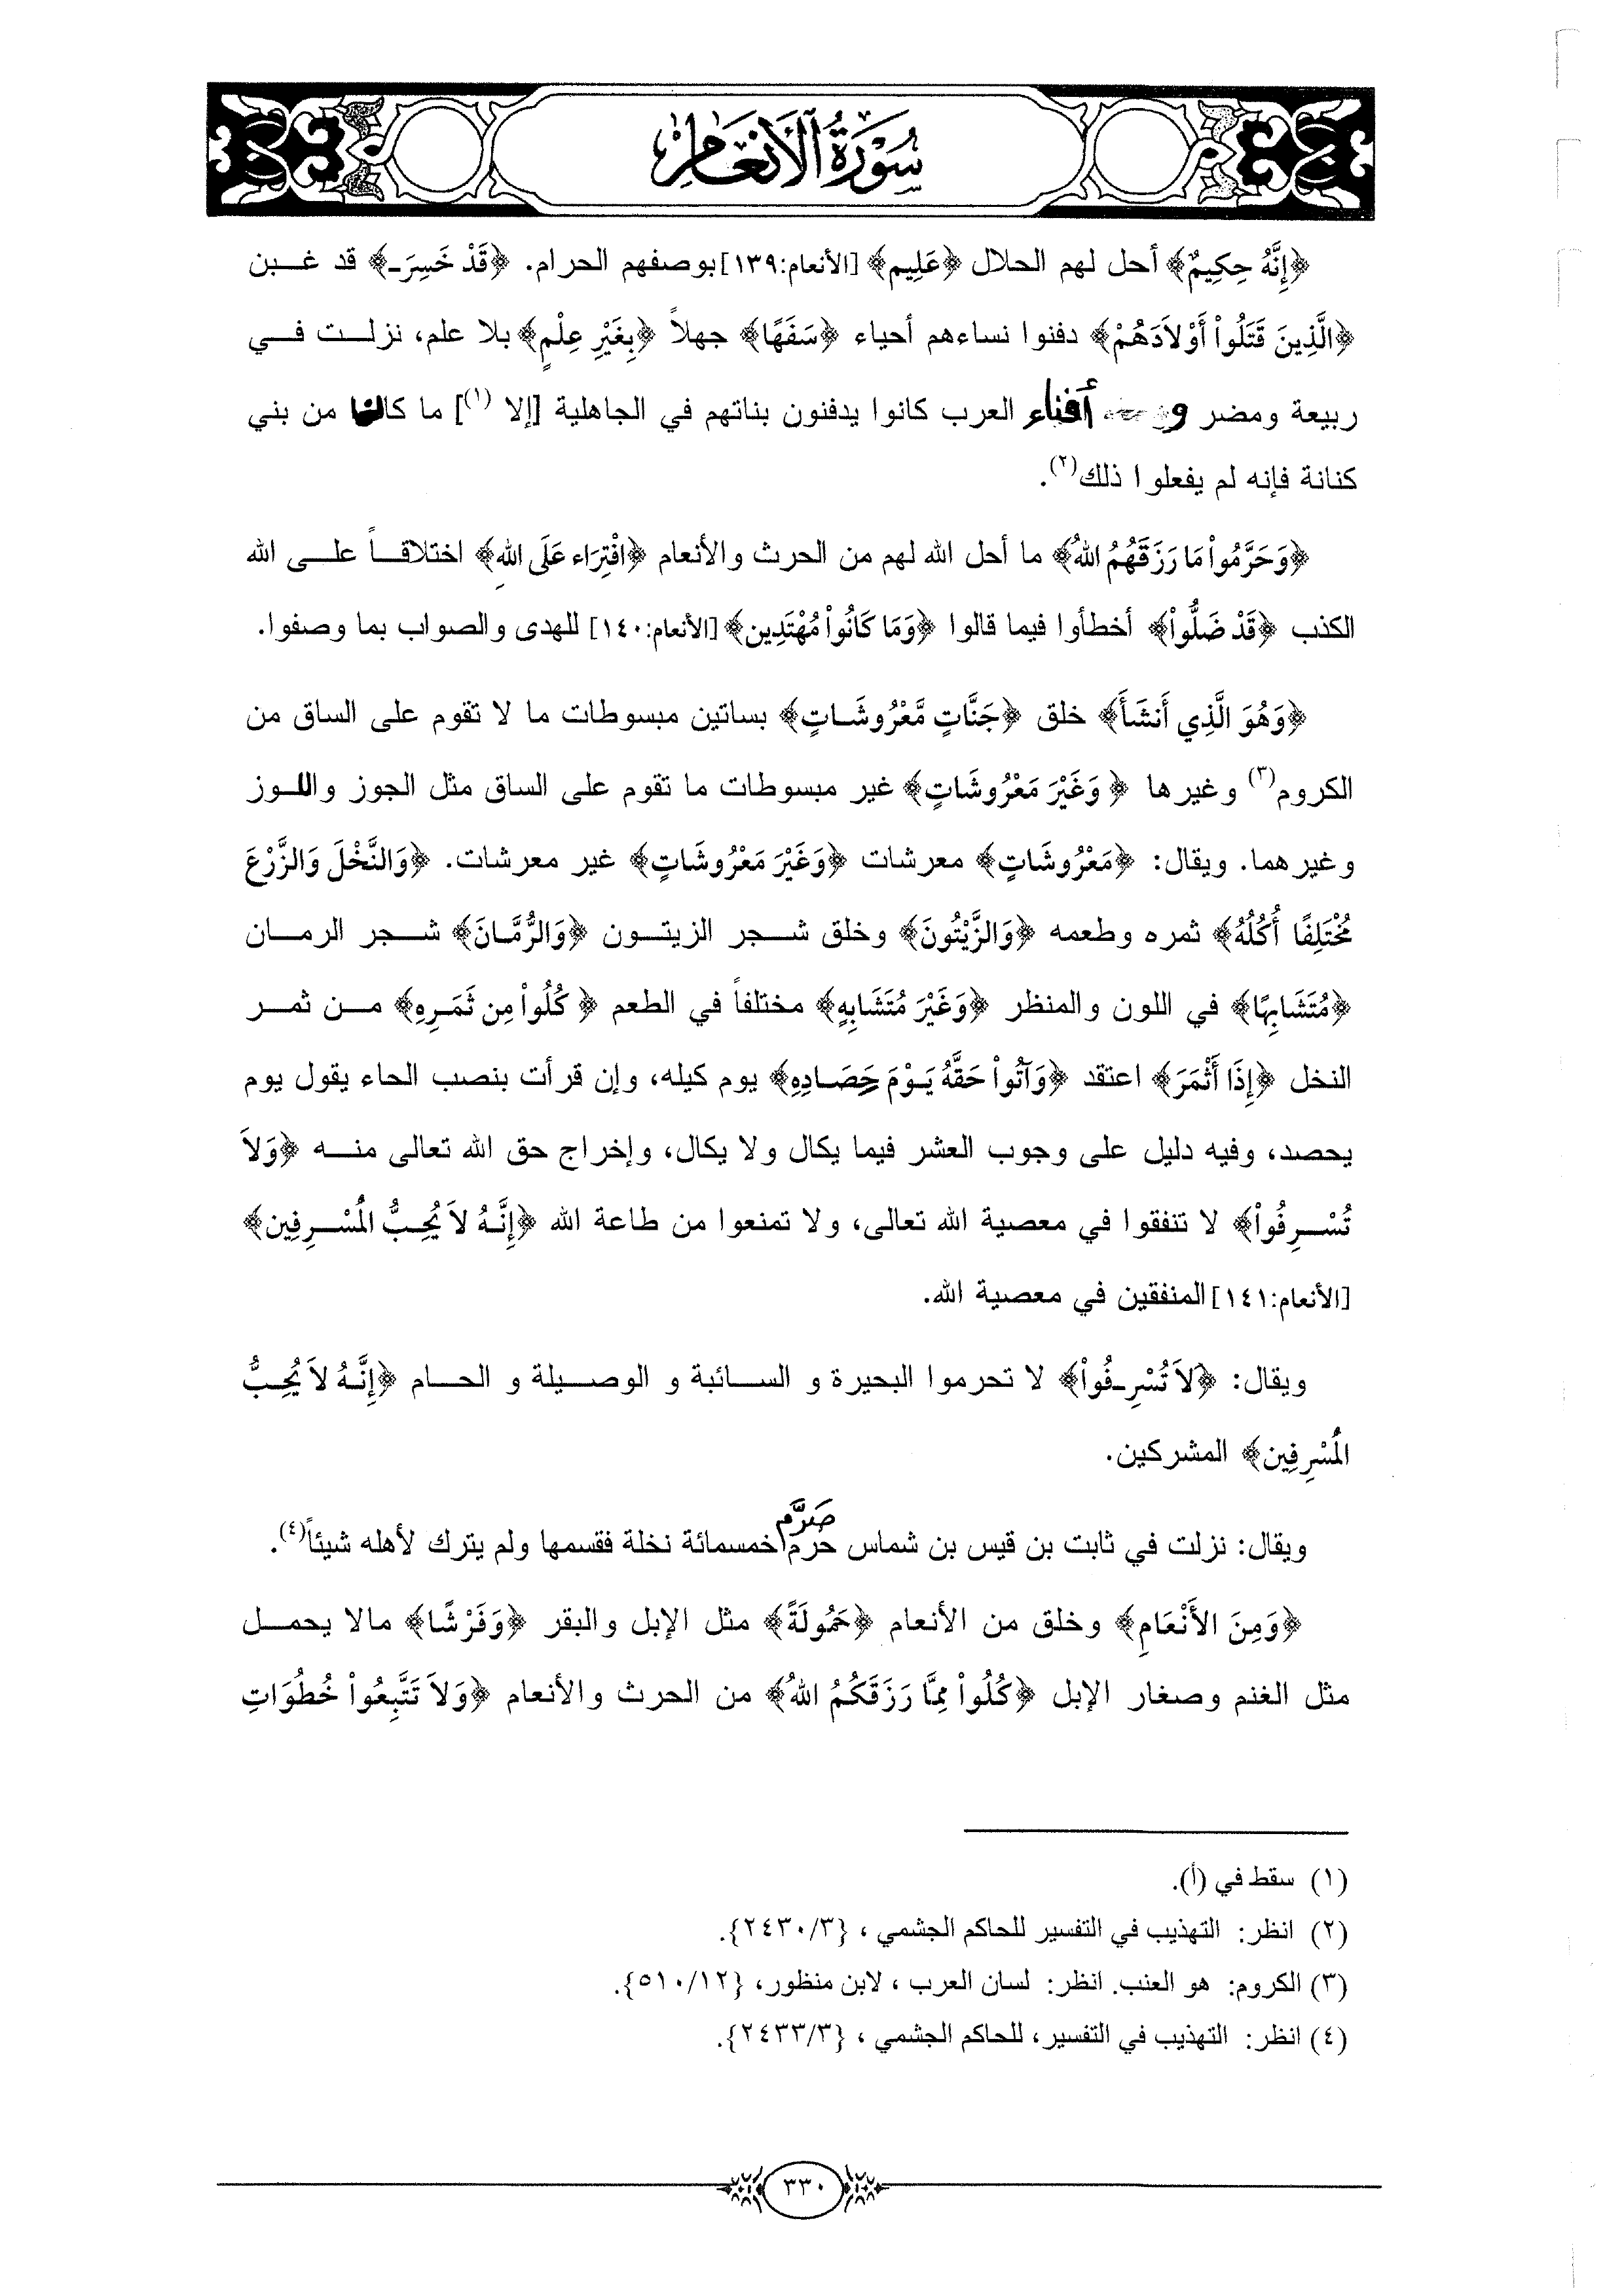 سُوْرَةُ الْأَنْعَامِ
﴿إِنَّهُ حِكِيمٌ﴾ أحل لهم الحلال ﴿عَلِيم﴾ [الأنعام:١٣٩]بوصفهم الحرام. ﴿قَدْ خَسِرَ﴾ قد غبن
﴿الَّذِينَ قَتَلُواْ أَوْلاَدَهُمْ﴾ دفنوا نساءهم أحياء ﴿سَفَهًا﴾ جهلاً ﴿بِغَيْرِ عِلْمٍ﴾ بلا علم، نزلت في
ربيعة ومضر و أفناء العرب كانوا يدفنون بناتهم في الجاهلية [إلا (١)] ما كان من بني
كنانة فإنه لم يفعلوا ذلك(٢).
﴿وَحَرَّمُواْ مَا رَزَقَهُمُ اللهُ﴾ ما أحل الله لهم من الحرث والأنعام ﴿افْتِرَاء عَلَى اللهِ﴾ اختلاقاً على الله
الكذب ﴿قَدْ ضَلُّواْ﴾ أخطأوا فيما قالوا ﴿وَمَا كَانُواْ مُهْتَدِين﴾ [الأنعام:١٤٠] للهدى والصواب بما وصفوا.
﴿وَهُوَ الَّذِي أَنشَأَ﴾ خلق ﴿جَنَّاتٍ مَّعْرُوشَاتٍ﴾ بساتين مبسوطات ما لا تقوم على الساق من
الكروم(٣) وغيرها ﴿وَغَيْرَ مَعْرُوشَاتٍ﴾ غير مبسوطات ما تقوم على الساق مثل الجوز واللوز
وغيرهما. ويقال: ﴿مَعْرُوشَاتٍ﴾ معرشات ﴿وَغَيْرَ مَعْرُوشَاتٍ﴾ غير معرشات. ﴿وَالنَّخْلَ وَالزَّرْعَ
مُخْتَلِفًا أُكُلُهُ﴾ ثمره وطعمه ﴿وَالزَّيْتُونَ﴾ وخلق شجر الزيتون ﴿وَالرُّمَّانَ﴾ شجر الرمان
﴿مُتَشَابِهًا﴾ في اللون والمنظر ﴿وَغَيْرَ مُتَشَابِهٍ﴾ مختلفاً في الطعم ﴿كُلُواْ مِن ثَمَرِهِ﴾ من ثمر
النخل ﴿إِذَا أَثْمَرَ﴾ اعتقد ﴿وَآتُواْ حَقَّهُ يَوْمَ حِصَادِهِ﴾ يوم كيله، وإن قرأت بنصب الحاء يقول يوم
يحصد، وفيه دليل على وجوب العشر فيما يكال ولا يكال، وإخراج حق الله تعالى منه ﴿وَلاَ
تُسْرِفُواْ﴾ لا تنفقوا في معصية الله تعالى، ولا تمنعوا من طاعة الله ﴿إِنَّهُ لاَ يُحِبُّ الْمُسْرِفِين﴾
[الأنعام:١٤١]المنفقين في معصية الله.
ويقال: ﴿لاَ تُسْرِفُواْ﴾ لا تحرموا البحيرة و السائبة و الوصيلة و الحام ﴿إِنَّهُ لاَ يُحِبُّ
الْمُسْرِفِين﴾ المشركين.
صَرَّم
ويقال: نزلت في ثابت بن قيس بن شماس حرم خمسمائة نخلة فقسمها ولم يترك لأهله شيئاً(٤).
﴿وَمِنَ الأَنْعَامِ﴾ وخلق من الأنعام ﴿حَمُولَةً﴾ مثل الإبل والبقر ﴿وَفَرْشًا﴾ مالا يحمل
مثل الغنم وصغار الإبل ﴿كُلُواْ مِمَّا رَزَقَكُمُ اللهُ﴾ من الحرث والأنعام ﴿وَلاَ تَتَّبِعُواْ خُطُوَاتِ
(١) سقط في (أ).
(٢) انظر: التهذيب في التفسير للحاكم الجشمي ، {٢٤٣٠/٣}.
(٣) الكروم: هو العنب. انظر: لسان العرب ، لابن منظور، {٥١٠/١٢}.
(٤) انظر: التهذيب في التفسير، للحاكم الجشمي ، {٢٤٣٣/٣}.
٣٣٠